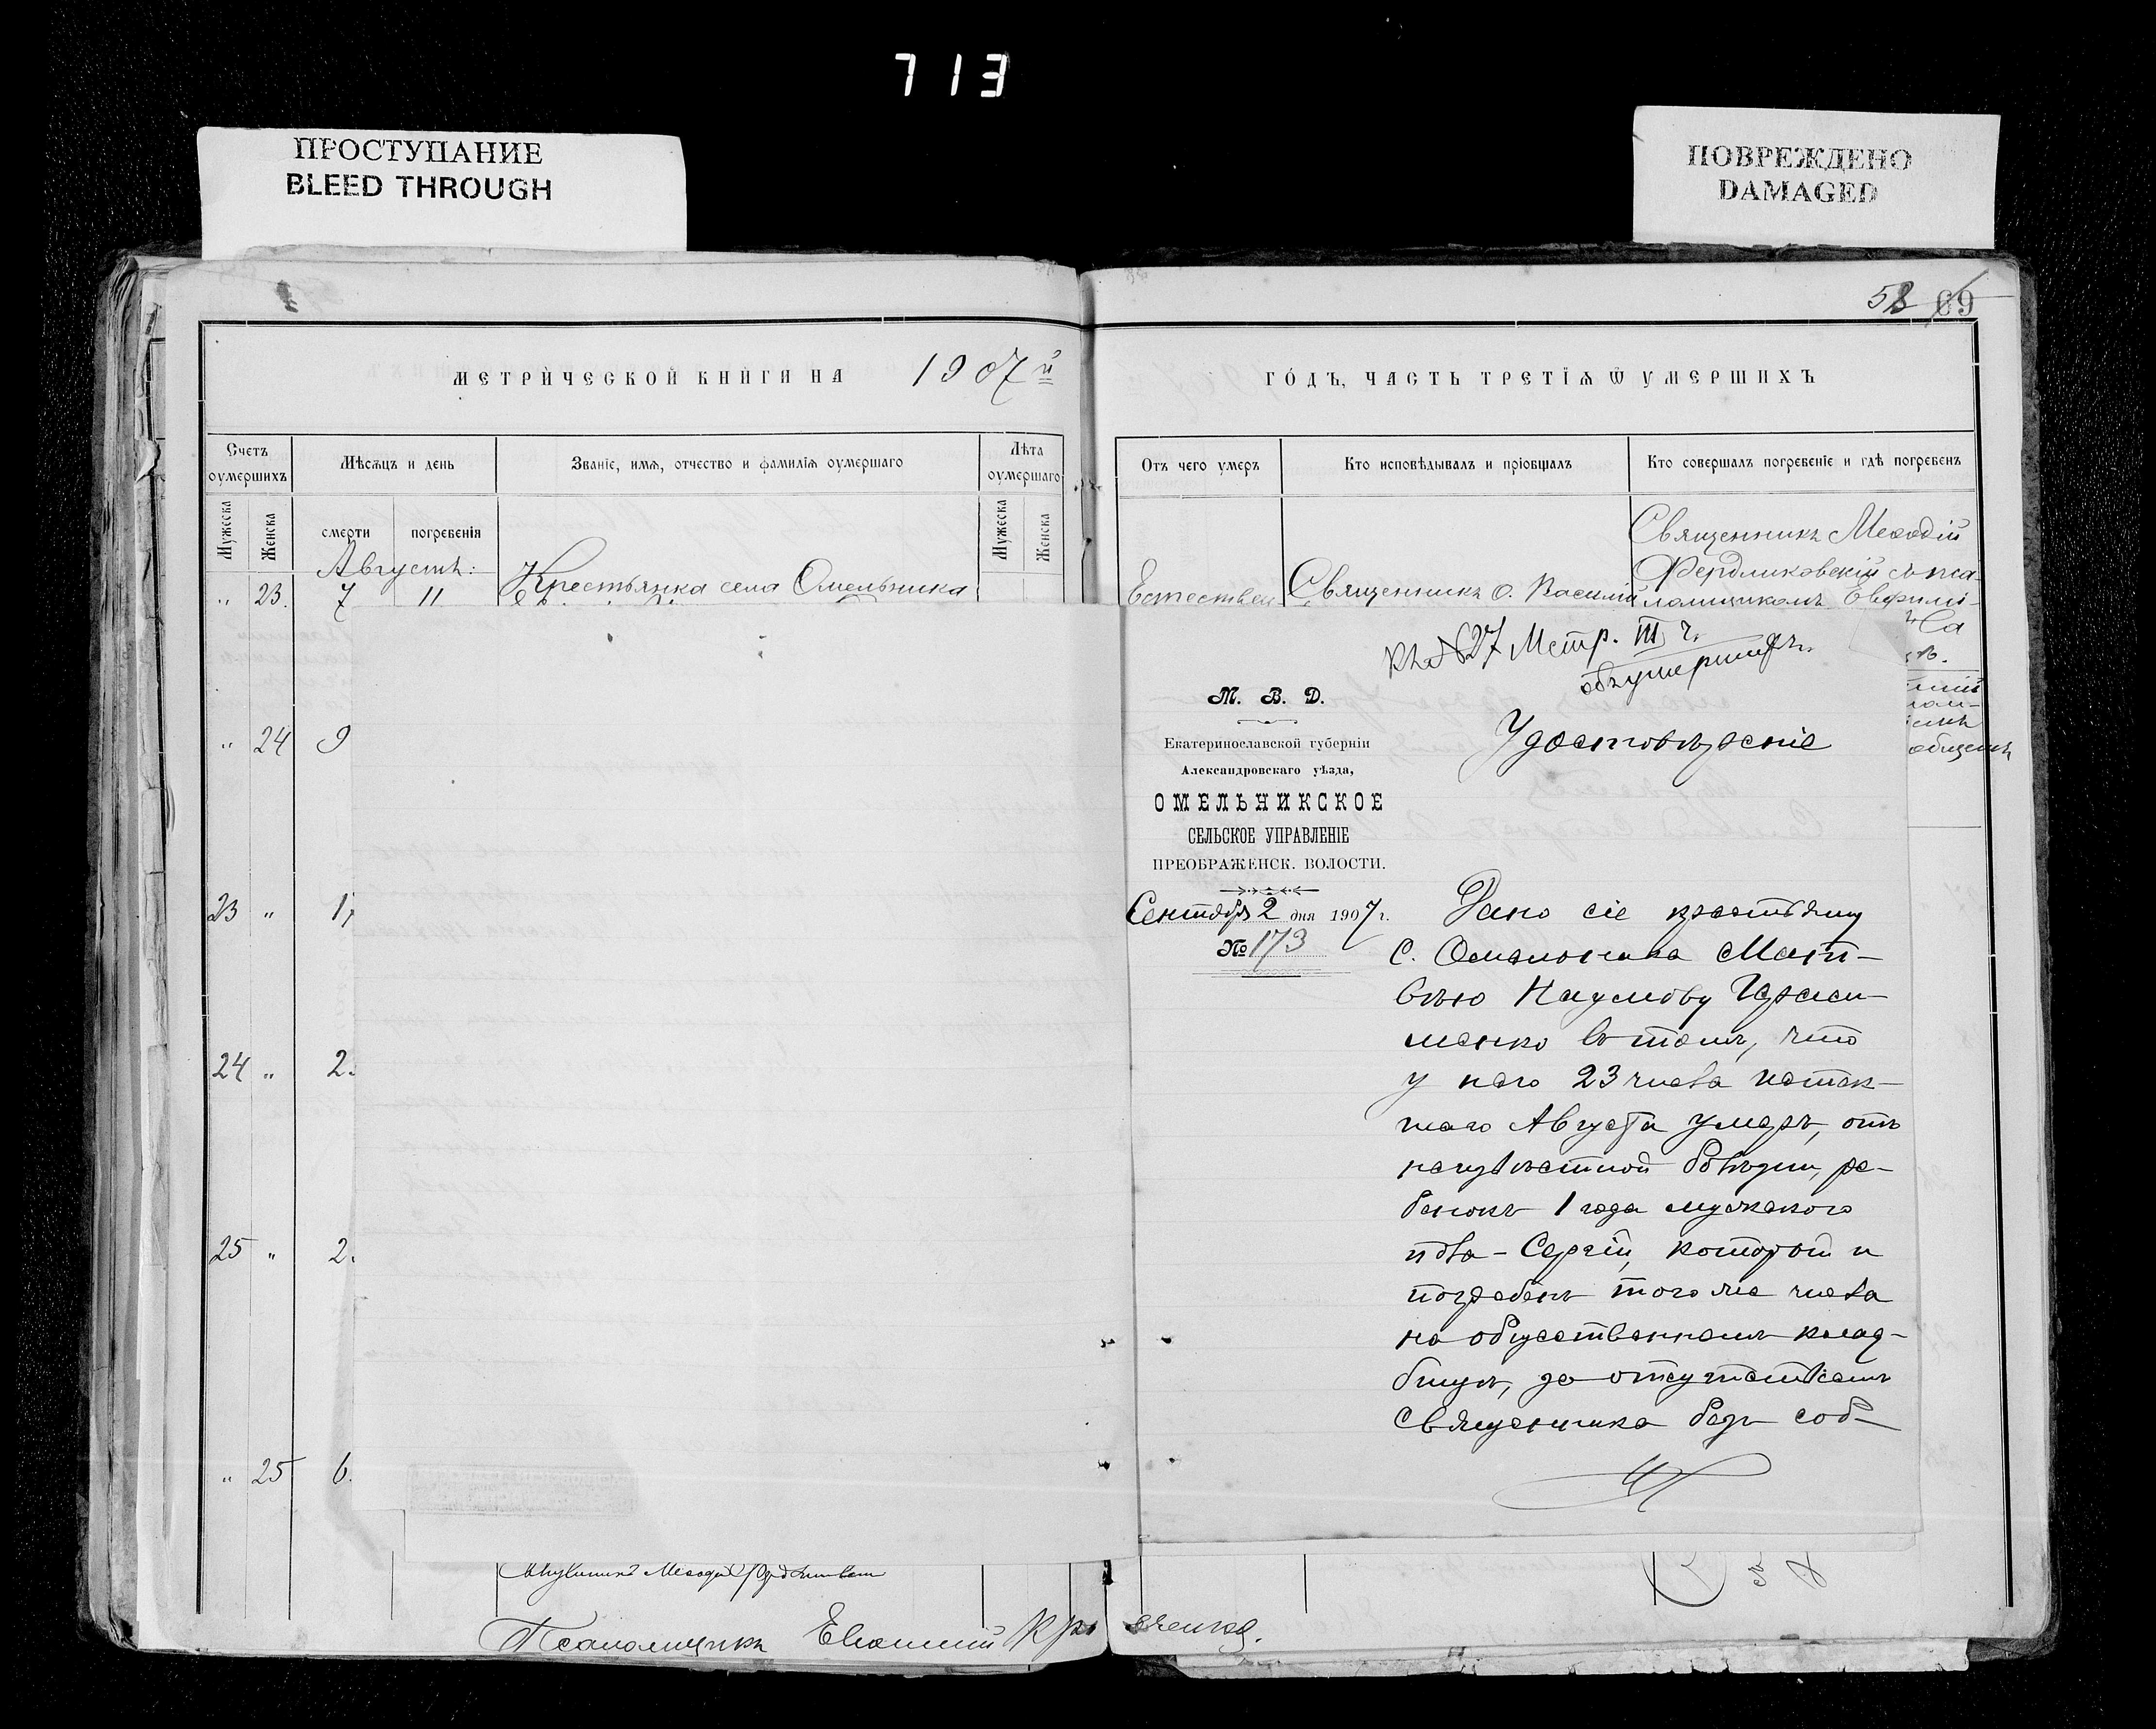 713
ПРОСТУПАНИЕ
BLEED THROUGH
ПОВРЕЖДЕНО
DAMAGED
58 69
МЕТРИЧЕСКОЙ КНИГИ НА 1907й
ГОДЪ, ЧАСТЬ ТРЕТІѦ Ѿ УМЕРШИХЪ
Счетъ оумершихъ
Мѣсѧцъ и день
Званіе, имѧ, отчество и фамиліѧ оумершаго
Лѣта оумершаго
Отъ чего умеръ
Кто исповѣдывалъ и пріобщалъ
Кто совершалъ погребеніе и гдѣ погребенъ
Мужеска
Женска
смерти
погребенія
Мужеска
Женска
Августъ:
" 23. 7 11
Крестьянка села Омельника
Естествен
Священникъ о. Василій
Священникъ Меѳодій
Фердликовскій съ пса-
ломщикомъ Евѳимі-
" 24 9
23 " 1
24 " 2
25 " 2
" 25 6
Къ №27 Метр. III ч.
объ умершихъ.
М. В. Д.
Екатеринославской губерніи
Александровскаго уѣзда,
ОМЕЛЬНИКСКОЕ
СЕЛЬСКОЕ УПРАВЛЕНІЕ
ПРЕОБРАЖЕНСК. ВОЛОСТИ.
Сентября 2 дня 1907 г.
№ 173
Удостовѣреніе
Дано сіе крестьянину
С. Омельника Мат-
вѣю Наумову Гераси-
менко въ томъ, что
у него 23 числа истек-
шаго Августа умеръ, отъ
неизвѣстной болѣзни, ре-
бенокъ 1 года мужского
пола - Сергій, который и
погребенъ того же числа
на общественномъ клад-
бищѣ, за отсутствіемъ
Священника безъ соб-
Псаломщикъ Евѳимій